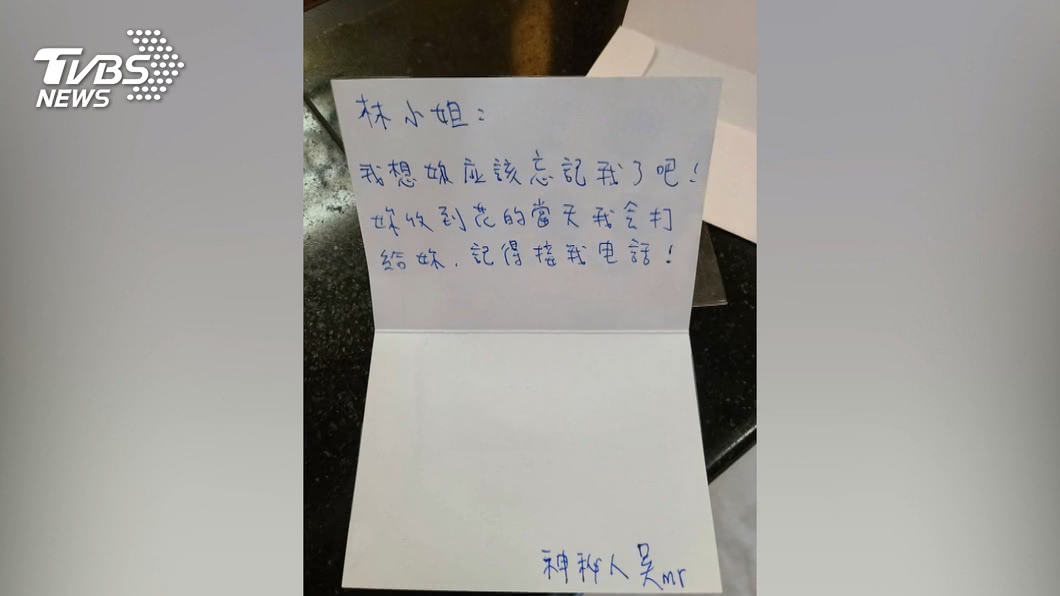 TVBS
NEWS
林小姐：
我想妳应該忘記我了吧！
妳收到花的當天我会打
給妳，記得接我电話！
神秘人吴mr